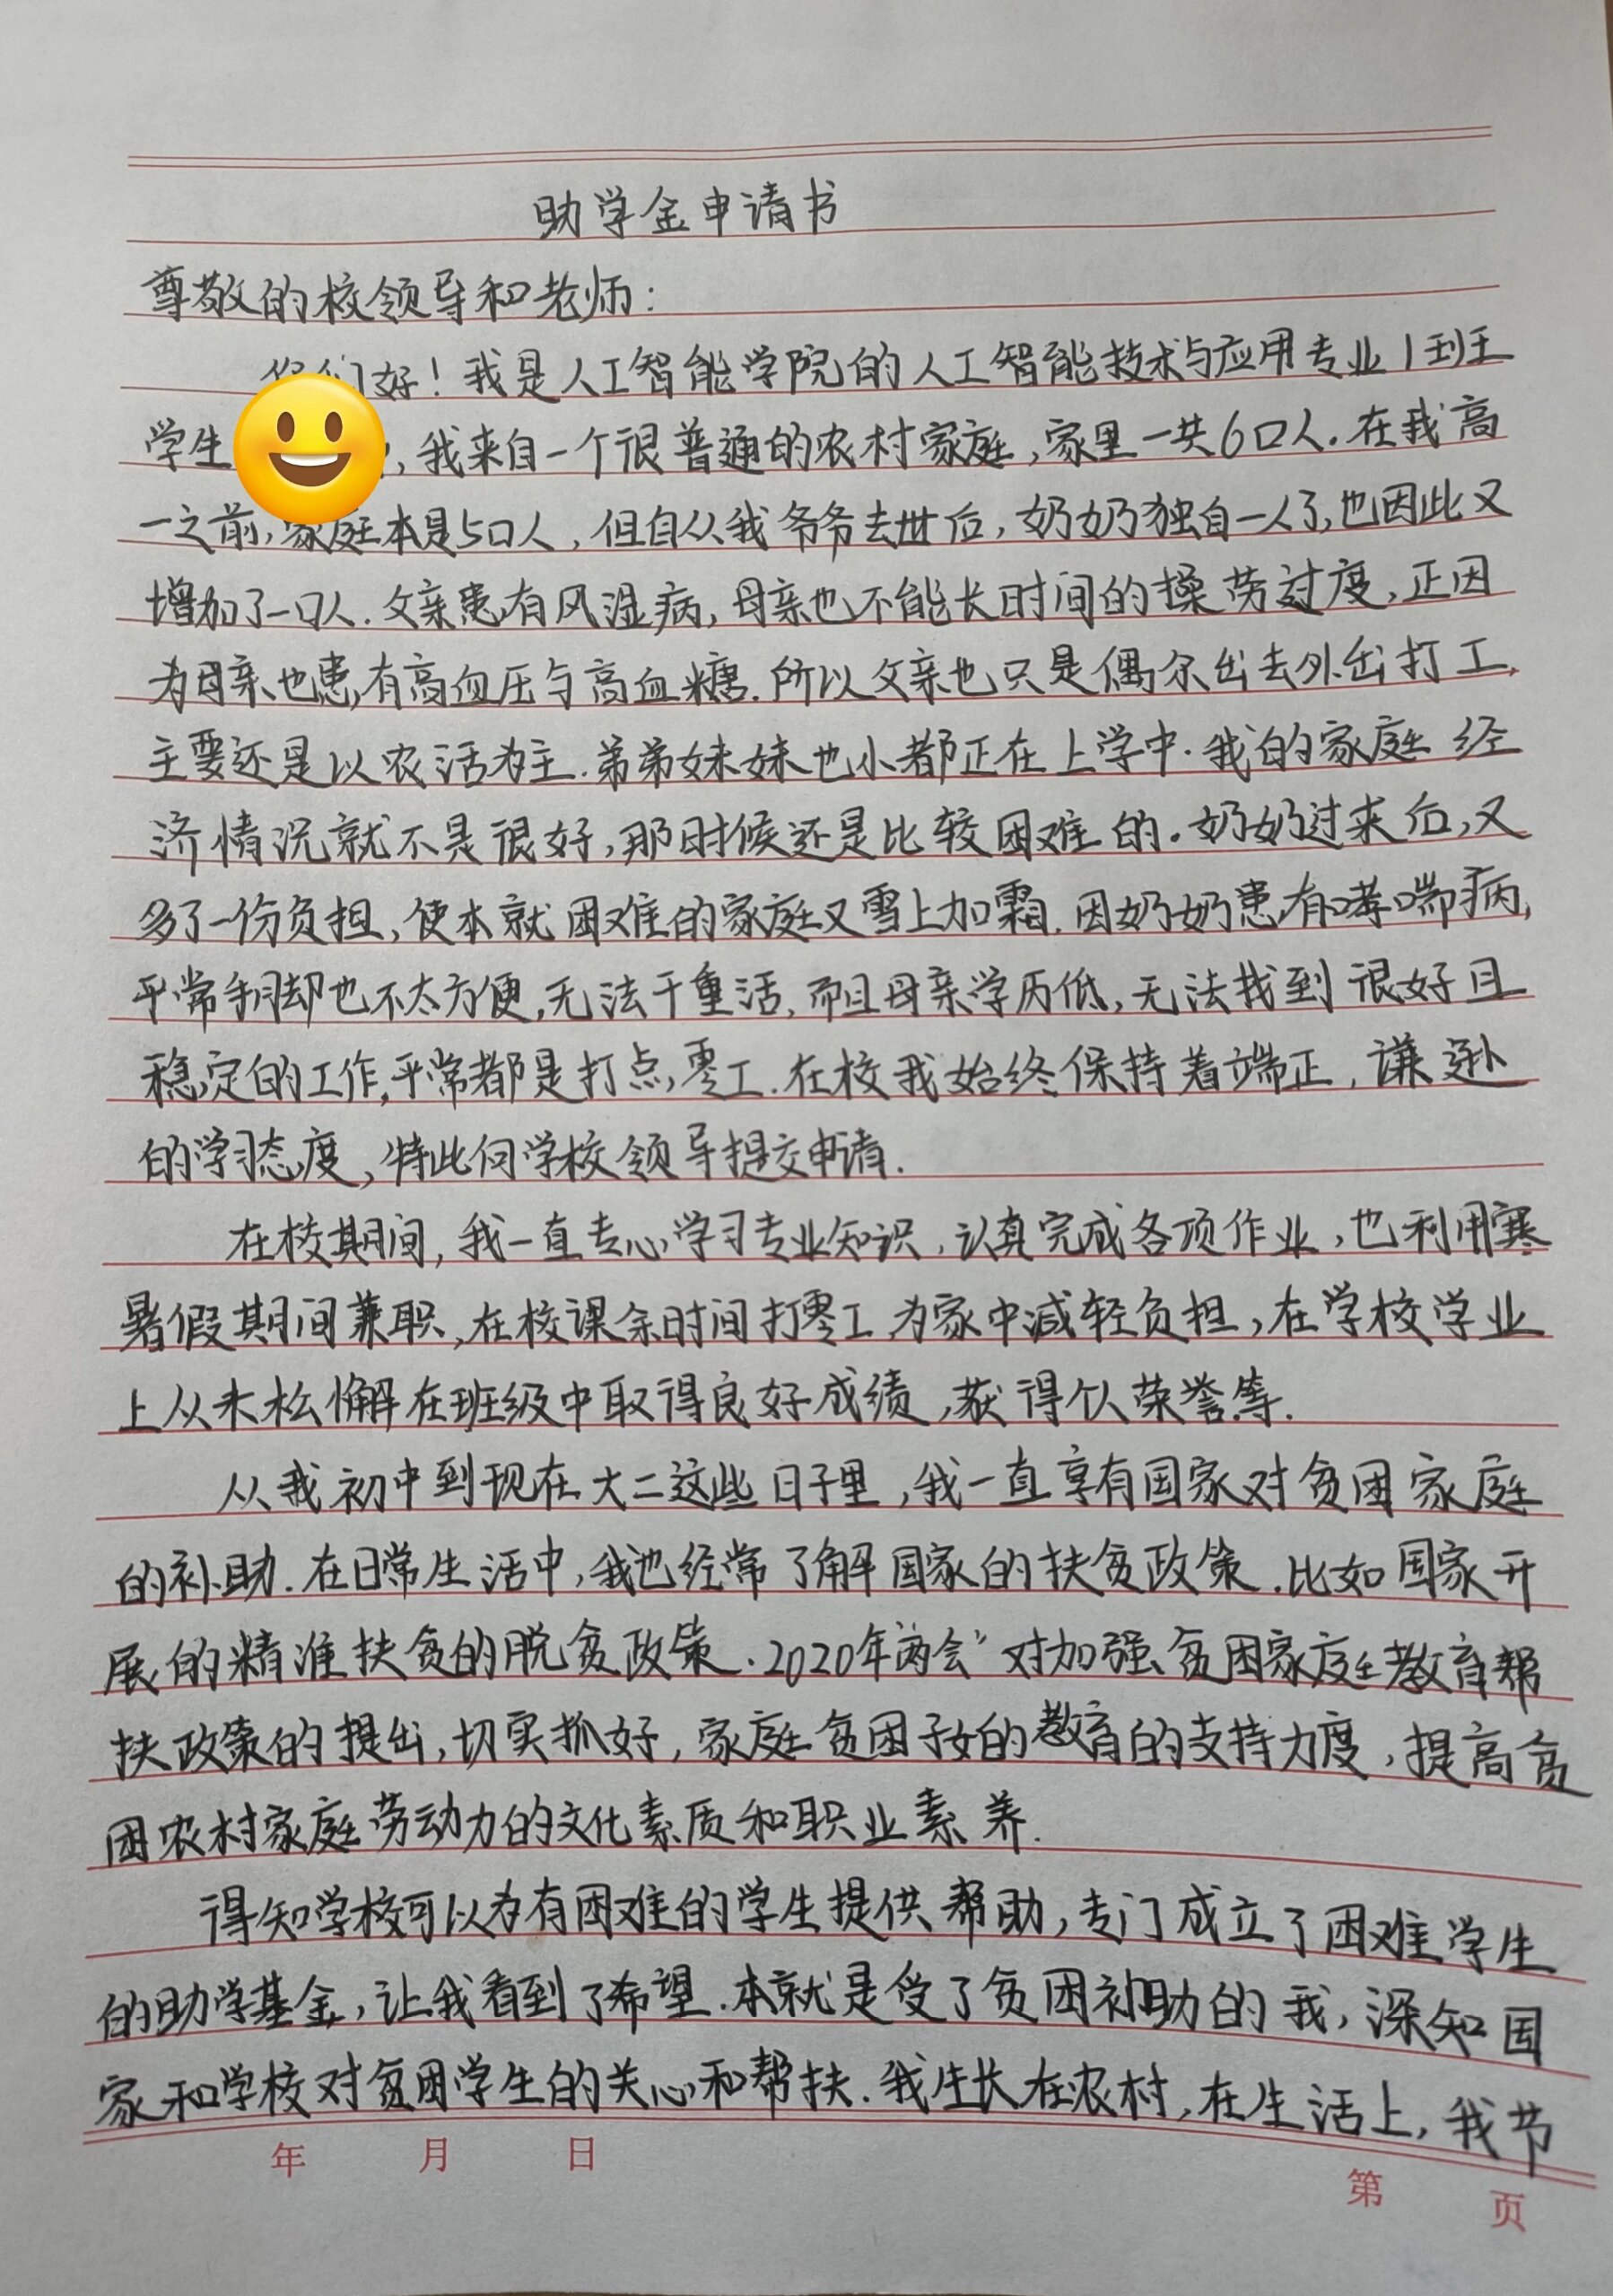 助学金申请书
尊敬的校领导和老师:
你们好!我是人工智能学院的人工智能技术与应用专业1班
学生,我来自一个很普通的农村家庭,家里一共6口人.在我高
一之前,家庭本是5口人,但自从我爷爷去世后,奶奶独自一人了,也因此又
增加了一口人.父亲患有风湿病,母亲也不能长时间的操劳过度,正因
为母亲也患有高血压与高血糖.所以父亲也只是偶尔出去外出打工,
主要还是以农活为主.弟弟妹妹也小都正在上学中.我的家庭经
济情况就不是很好,那时候还是比较困难的.奶奶过来后,又
多了一份负担,使本就困难的家庭又雪上加霜.因奶奶患有哮喘病,
平常手脚也不太方便,无法干重活,而且母亲学历低,无法找到很好且
稳定的工作,平常都是打点零工.在校我始终保持着端正,谦逊
的学习态度,特此向学校领导提交申请.
在校期间,我一直专心学习专业知识,认真完成各项作业,也利用寒
暑假期间兼职,在校课余时间打零工为家中减轻负担,在学校学业
上从未松懈在班级中取得良好成绩,获得个人荣誉等.
从我初中到现在大二这些日子里,我一直享有国家对贫困家庭
的补助.在日常生活中,我也经常了解国家的扶贫政策.比如国家开
展的精准扶贫的脱贫政策.2020年"两会"对加强贫困家庭教育帮
扶政策的提出,切实抓好,家庭贫困子女的教育的支持力度,提高贫
困农村家庭劳动力的文化素质和职业素养.
得知学校可以为有困难的学生提供帮助,专门成立了困难学生
的助学基金,让我看到了希望.本就是受了贫困补助的我,深知国
家和学校对贫困学生的关心和帮扶.我生长在农村,在生活上,我节
年 月 日
第 页